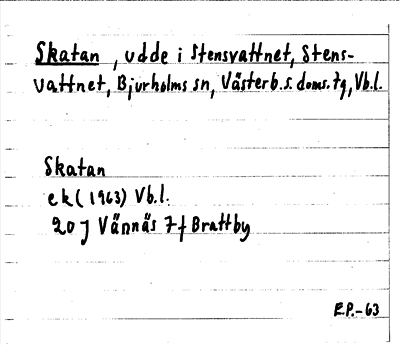 Skatan, udde i Stensvattnet, Stens-
vattnet, Bjurholms sn, Västerb.s. doms.tg, Vb.l.
Skatan
ek (1963) Vb.l.
20 J Vännäs 7f Brattby
E.P.-63